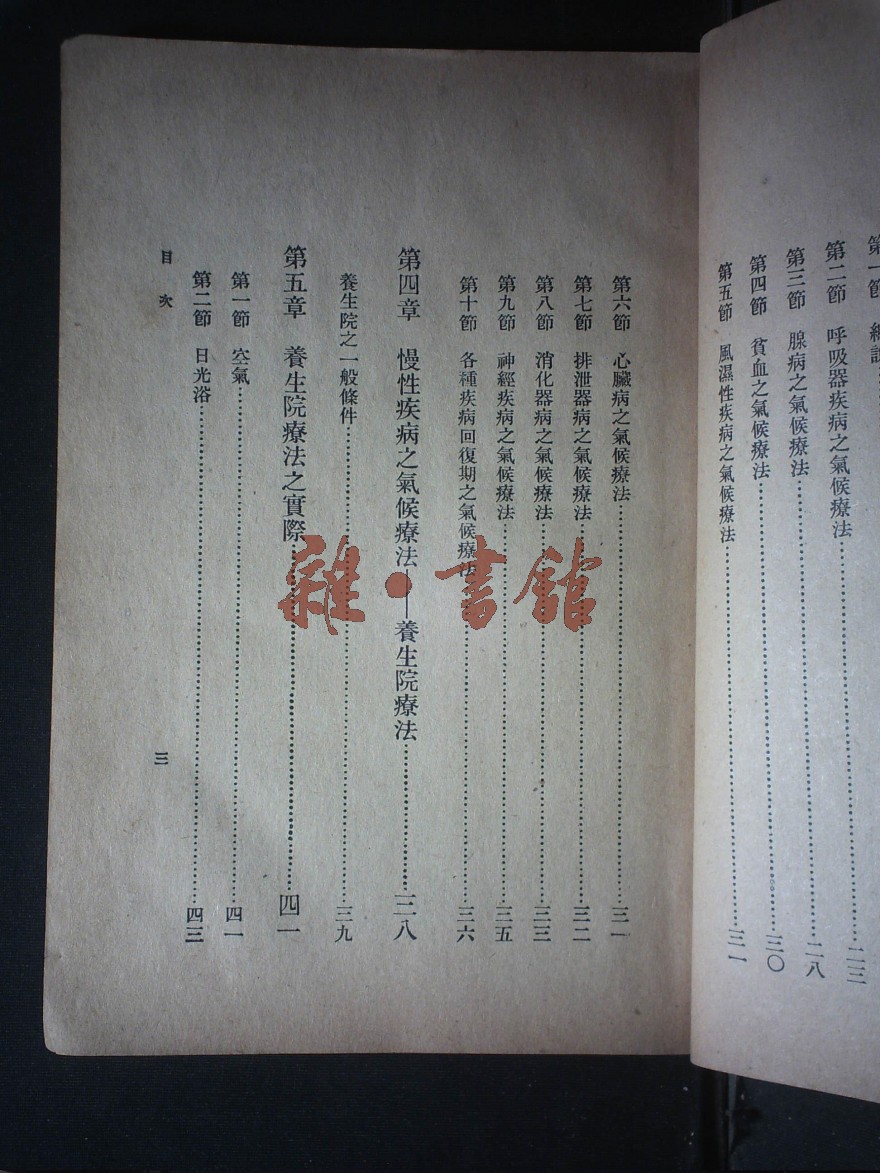 第一節 總說
第二節 呼吸器疾病之氣候療法 二三
第三節 腺病之氣候療法 二八
第四節 貧血之氣候療法 三〇
第五節 風濕性疾病之氣候療法 三一
第六節 心臟病之氣候療法 三一
第七節 排泄器病之氣候療法 三二
第八節 消化器病之氣候療法 三三
第九節 神經疾病之氣候療法 三五
第十節 各種疾病回復期之氣候療法 三六
第四章 慢性疾病之氣候療法——養生院療法 三八
養生院之一般條件 三九
第五章 養生院療法之實際 四一
第一節 空氣 四一
第二節 日光浴 四三
目次 三
雜·書館